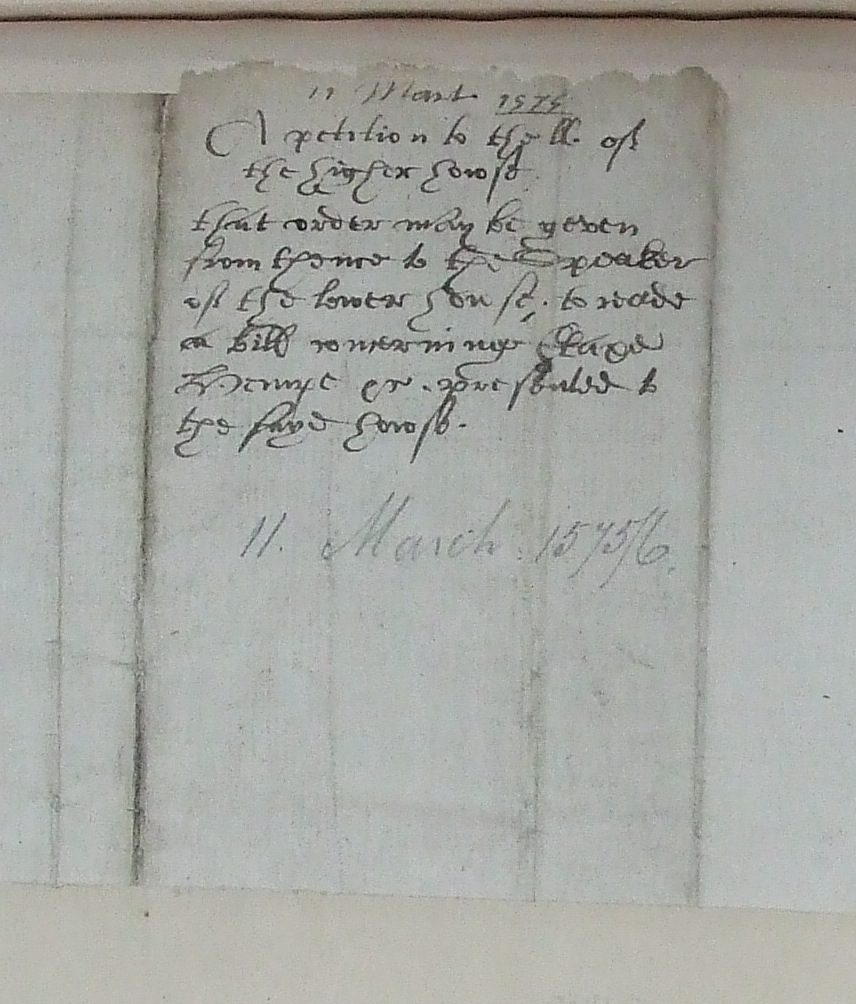 11 Mart 1575
A petition to the ll. of
the higher howse
that order may be geven
from thence to the Speaker
of the lower house. to reade
a bill concerninge
Hempe &c. presented to
the sayd howse.
11. March 1575/6.